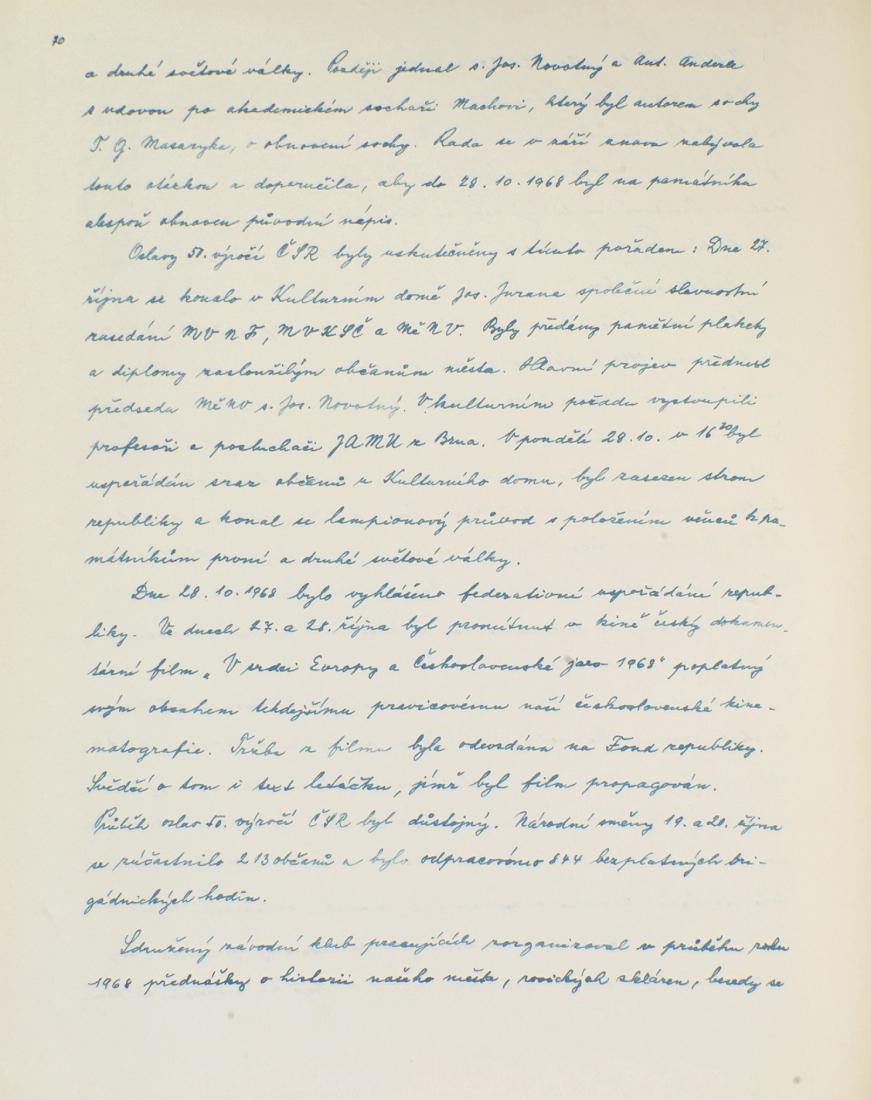 70
a druhé světové války. Později jednal s. Jos. Novotný a Ant. Anderle
s vdovou po akademickém sochaři Machovi, který byl autorem sochy
T. G. Masaryka, o obnovení sochy. Rada se v září znova zabývala
touto otázkou a doporučila, aby do 28. 10. 1968 byl na památníku
alespoň obnoven původní nápis.
Oslavy 50. výročí ČSR byly uskutečněny s tímto pořadem: Dne 27.
října se konalo v Kulturním domě Jos. Jurana společné slavnostní
zasedání MV NF, MV KSČ a MěNV. Byly předány pamětní plakety
a diplomy zasloužilým občanům města. Hlavní projev přednesl
předseda MěNV s. Jos. Novotný. V kulturním pořadu vystoupili
profesoři a posluchači JAMU z Brna. V pondělí 28.10. v 16³⁰ byl
uspořádán sraz občanů u Kulturního domu, byl zasazen strom
republiky a konal se lampionový průvod s položením věnců k pa-
mátníkům první a druhé světové války.
Dne 28. 10. 1968 bylo vyhlášeno federativní uspořádání repub-
liky. Ve dnech 27. a 28. října byl promítnut v kině český dokumen-
tární film „V srdci Evropy a Československé jaro 1968" poplatný
svým obsahem tehdejšímu pravicovému naší československé kine-
matografie. Tržba z filmu byla odevzdána na Fond republiky.
Svědčí o tom i text letáčku, jímž byl film propagován.
Průběh oslav 50. výročí ČSR byl důstojný. Národní směny 19. a 20. října
se zúčastnilo 213 občanů a bylo odpracováno 844 bezplatných bri-
gádnických hodin.
Sdružený závodní klub pracujících zorganizoval v průběhu roku
1968 přednášky o historii našeho města, rosických skláren, besedy se